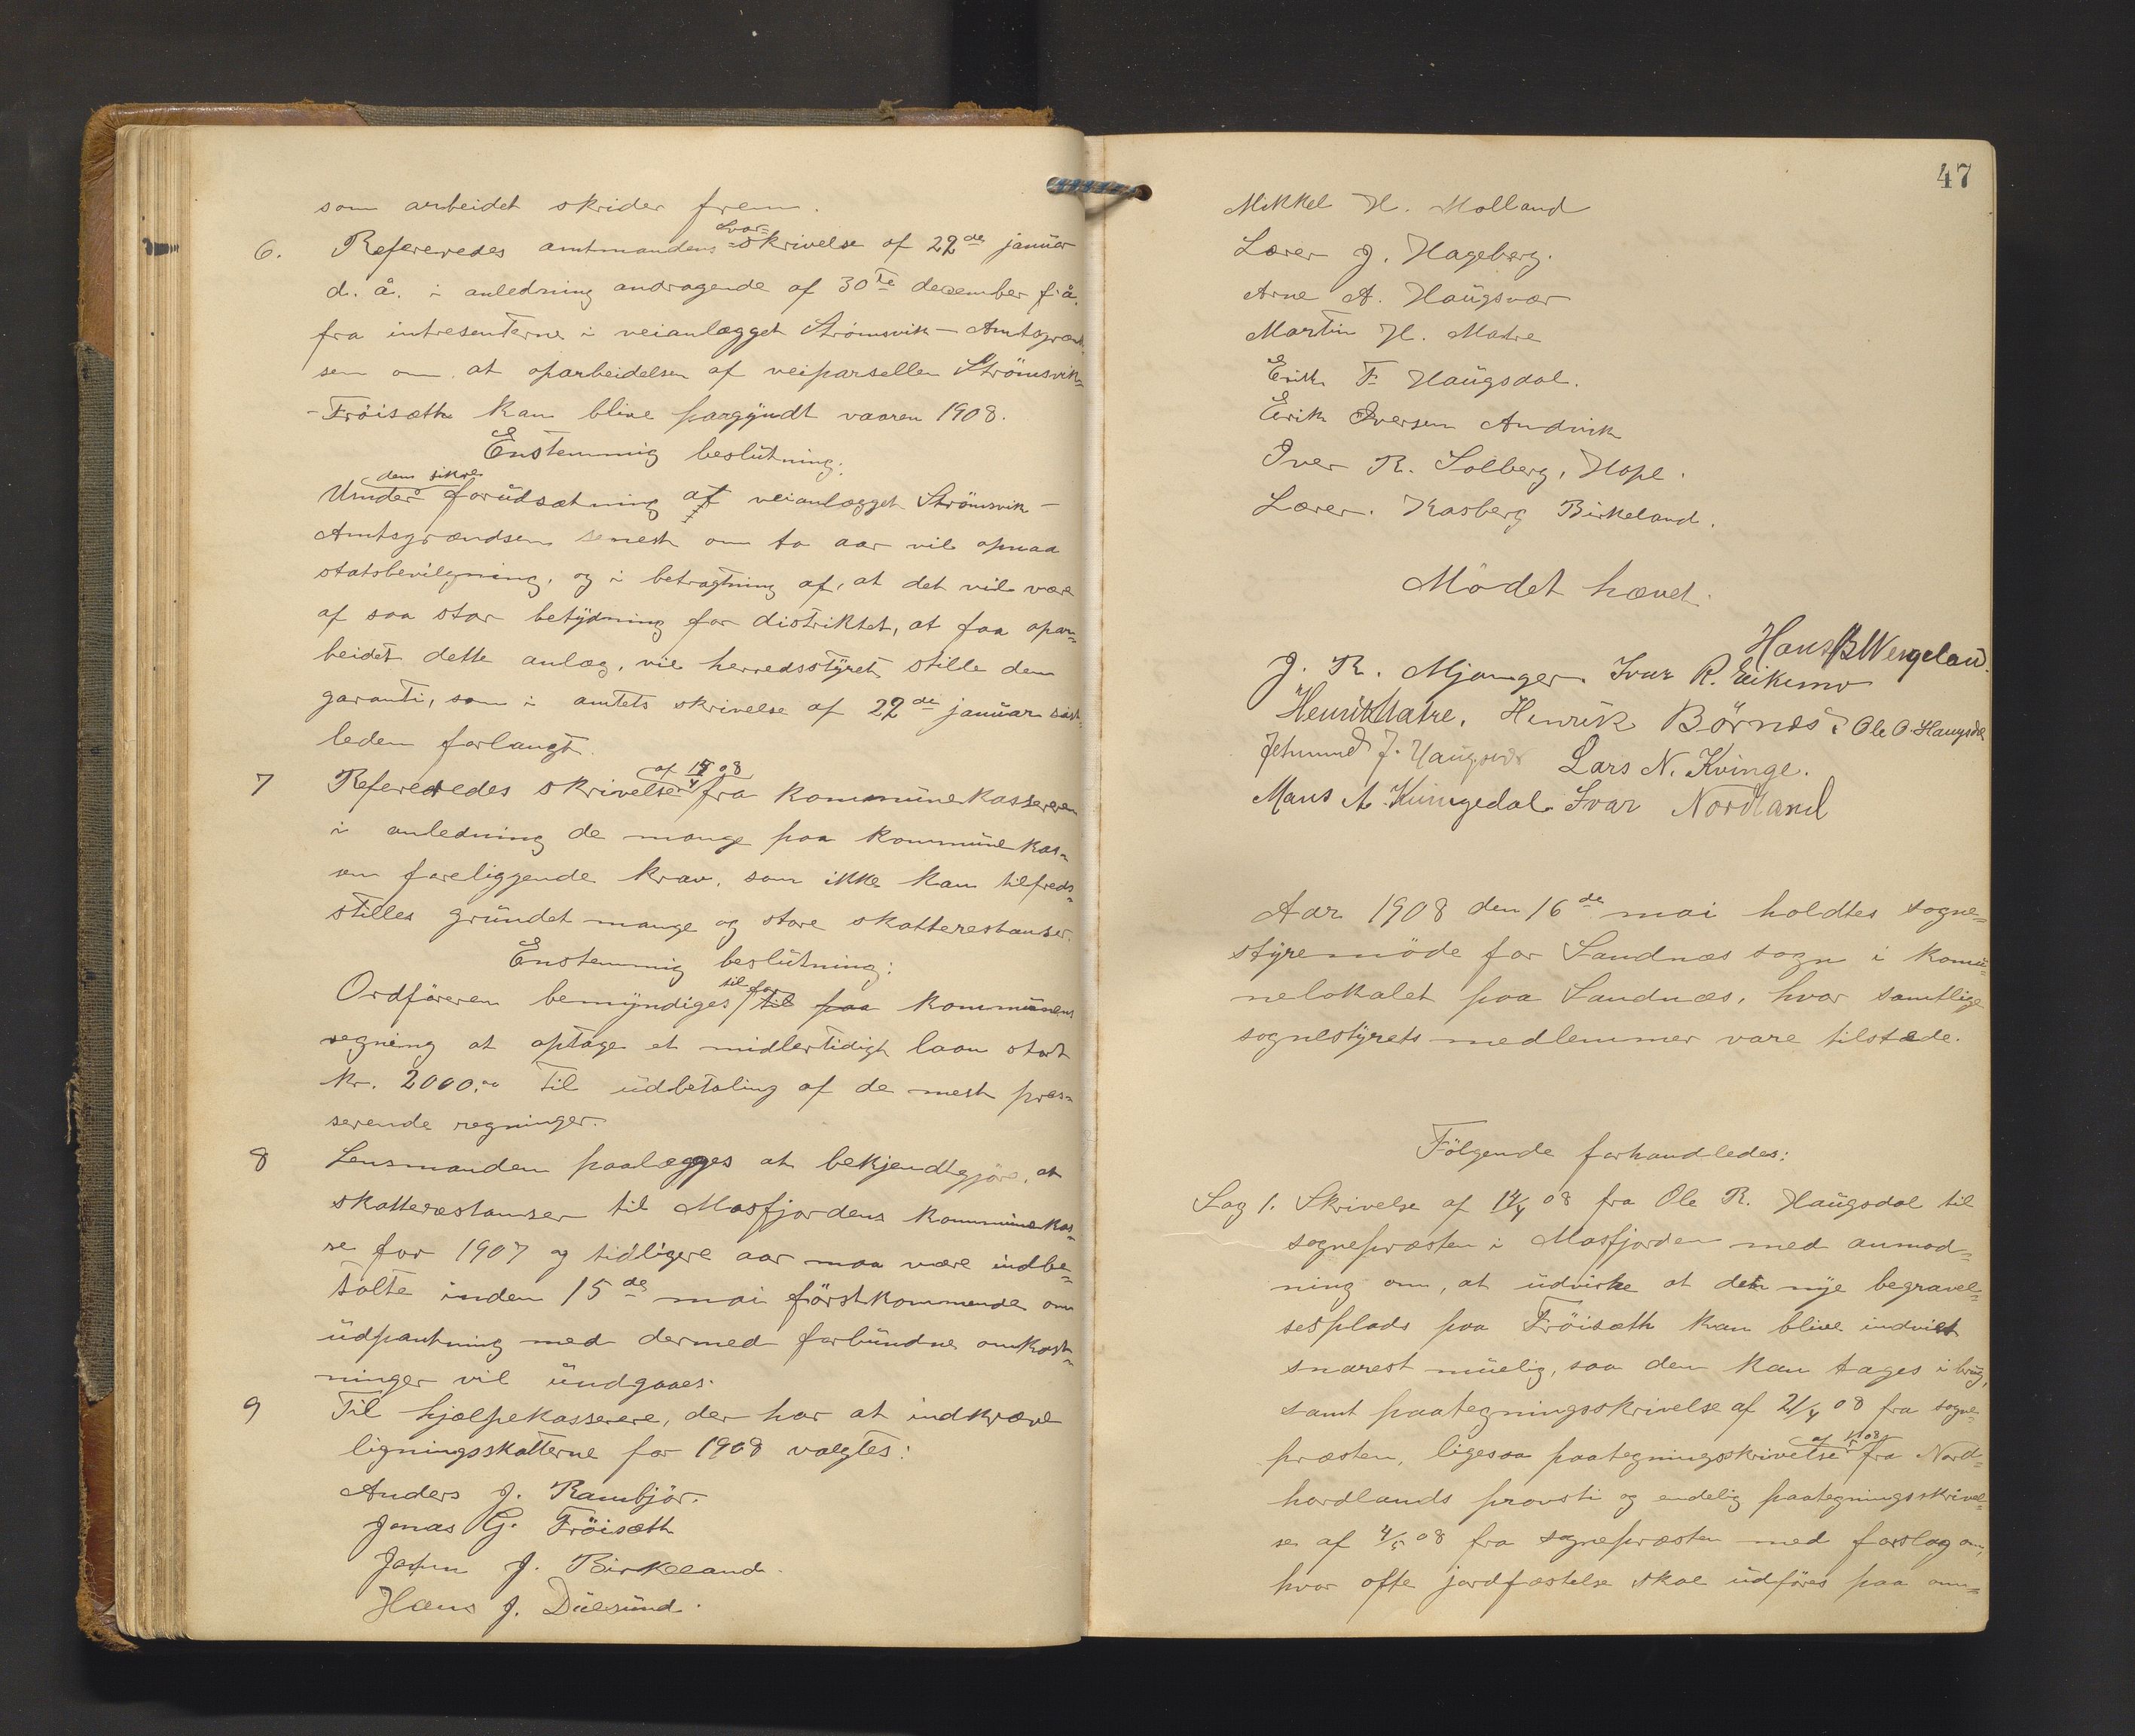 som arbeidet skrider frem.
6. Refereredes amtmandens svar-skrivelse af 22de januar
d. å. i anledning andragende af 30te december f. å.
fra intresenterne i veianlægget Strömsvik - Amtsgrænd-
sen om at oparbeidelsen af veiparsellen Strömsvik-
-Fröisæth kan blive paagyndt vaaren 1908.
Enstemmig beslutning:
Under den sikre forudsætning at veianlægget Strömsvik -
Amtsgrændsen senest om to aar vil opnaa
statsbevilgning, og i betragtning af, at det vil være
af saa stor betydning for distriktet, at faa opar-
beidet dette anlæg, vil herredsstyret stille den
garanti, som i amtets skrivelse af 22de januar sidst-
leden forlangt.
7 Refereredes skrivelse af 15/4 08 fra kommunekassereren
i anledning de mange paa kommunekas-
sen foreliggende krav, som ikke kan tilfreds-
stilles grundet mange og store skatterestanser.
Enstemmig beslutning:
Ordföreren bemyndiges til for til paa kommunens
regning at optage et midlertidigt laan stort
kr. 2000.00 til udbetaling af de mest præs-
serende regninger.
8 Lensmanden paalægges at bekjendtgjöre, at
skatterestanser til Masfjordens kommunekas-
se for 1907 og tidligere aar maa være indbe-
talte inden 15de mai förstkommende om
udpantning med dermed forbundne omkost-
ninger vil undgaaes.
9 Til hjælpekasserere, der har at indkræve
ligningsskatterne for 1908 valgtes:
Anders J. Rambjör.
Jonas G. Fröisæth
John J. Birkeland.
Hans J. Duesund.
47
Mikkel H. Molland
Lærer J. Hageberg.
Arne A. Haugsvær
Martin H. Matre
Erik F. Haugsdal.
Erik Iversen Andvik
Iver R. Solberg, Hope.
Lærer. Kasberg Birkeland.
Mödet hævet.
Hans B Wergeland.
J. R. Mjanger. Ivar R. Eikemo
Henrik Matre. Henrik Börnes. Ole O. Haugsdal
Jetmund J. Haugsvær Lars N. Kvinge.
Mans A. Kvingedal. Ivar Nordland
Aar 1908 den 16de mai holdtes sogne-
styremöde for Sandnæs sogn i komu-
nelokalet paa Sandnæs, hvor samtlige
sognestyrets medlemmer vare tilstede.
Fölgende forhandledes:
Sag 1. Skrivelse af 14/4 08 fra Ole R. Haugsdal til
sognepræsten i Masfjorden med anmod-
ning om, at udvirke at den nye begravel-
sesplads paa Fröisæth kan blive indviet
snarest muelig, saa den kan tages i brug,
samt paategningsskrivelse af 21/4 08 fra sogne-
præsten, ligesaa paategningsskrivelse af 1/5 08 fra Nord-
hordlands provsti og endelig paategningsskrivel-
se af 4/5 08 fra sognepræsten med forslag om,
hvor ofte jordfæstelse skal udföres paa om-